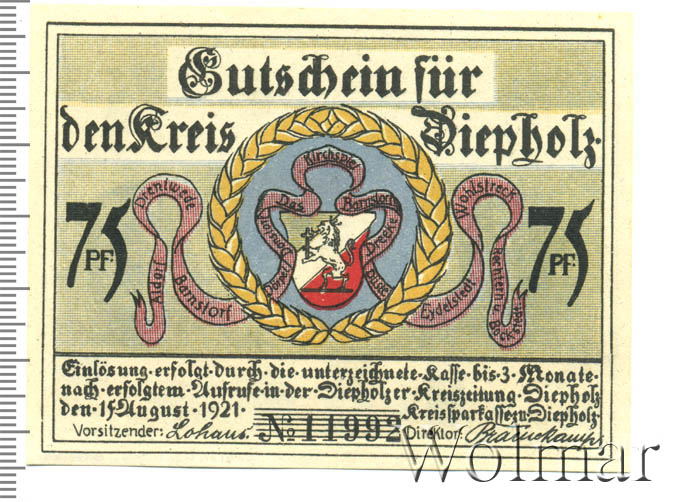 Gutschein für
den Kreis Diepholz.
Kirchspiel
Das Barnstorf
Drentwede
Aldorf
Barnstorf
Wohlstreck
Eydelstedt
Rechtern u.
75 PF. 75 PF.
Einlösung erfolgt durch die unterzeichnete Kasse bis 3 Monate
nach erfolgtem Aufrufe in der Diepholzer Kreiszeitung Diepholz
den 15 August 1921. Kreissparkasse zu Diepholz.
Vorsitzender: Lohaus. No 11992 Direktor:
Wolmar